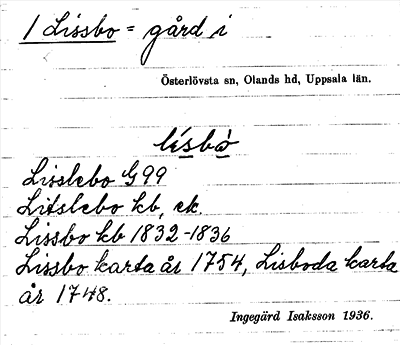 1 Lissbo = gård i
Österlövsta sn, Olands hd, Uppsala län.
lìsbò
Lisslebo G 99
Litslebo kb, ek.
Lissbo kb 1832-1836
Lissbo karta år 1754, Lisboda karta
år 1748.
Ingegärd Isaksson 1936.